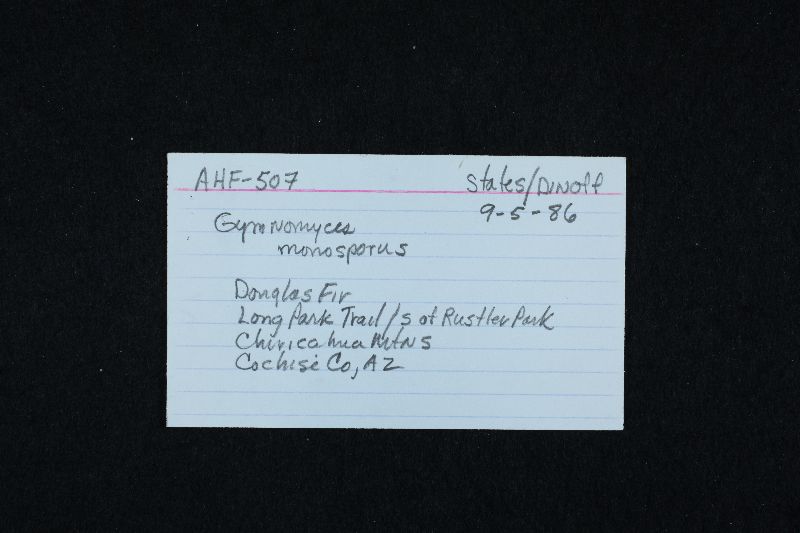 AHF-507
States/Dinoff
9-5-86
Gymnomyces
monosporus
Douglas Fir
Long Park Trail/S of Rustler Park
Chiricahua Mtns
Cochise Co, AZ